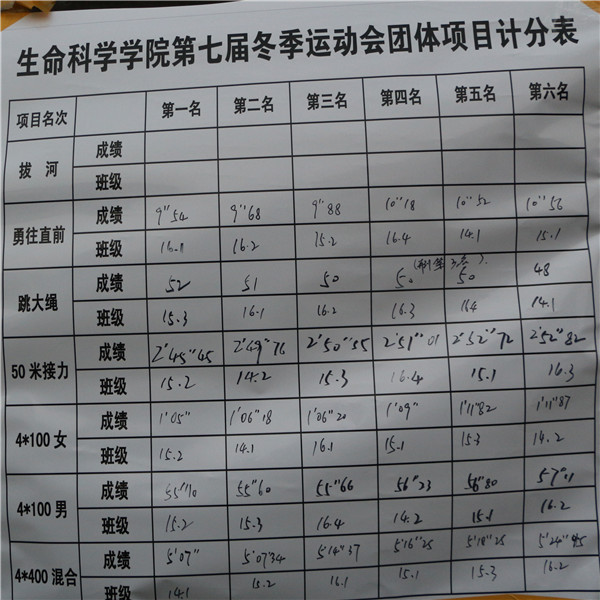 生命科学学院第七届冬季运动会团体项目计分表
项目名次 第一名 第二名 第三名 第四名 第五名 第六名
拔 河 成绩
班级
勇往直前 成绩 9"54 9"68 9"88 10"18 10"52 10"56
班级 16.1 16.2 15.2 16.4 14.1 15.1
跳大绳 成绩 52 51 50 50 50 48
班级 15.3 16.1 16.2 16.3 14.1
50米接力 成绩 2'45"45 2'49"76 2'50"55 2'51"01 2'52"72 2'52"82
班级 15.2 14.2 15.3 16.4 15.1 16.3
4*100女 成绩 1'05" 1'06"18 1'06"20 1'09" 1'11"82 1'11"87
班级 15.2 14.1 16.1 15.1 15.3 14.2
4*100男 成绩 55"10 55"60 55"66 56"23 56"80
班级 15.2 15.3 16.4 14.2 15.1 16.2
4*400混合 成绩 5'07" 5'07"34 5'14"37 5'16"25 5'18"25 5'24"45
班级 14.1 15.2 16.1 15.1 15.3 16.2